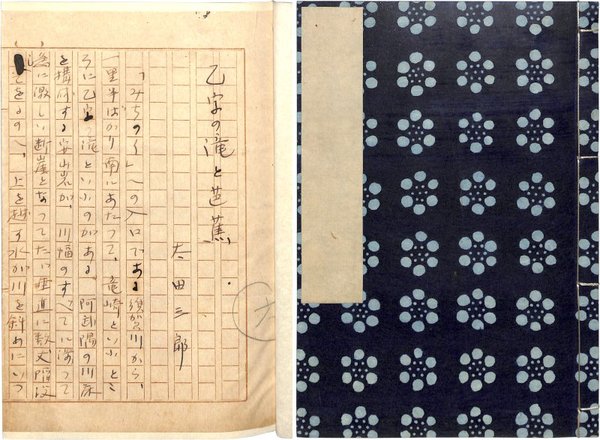 乙字の滝と芭蕉
太田三郎
「みちのく」への入口である須賀川から、
一里半ばかり南にあたつて、竜崎といふとこ
ろに乙字の滝といふのがある。阿武隈の川床
を構成する安山岩が、川幅のすべてに渉つて
急に激しい断崖となつて垂直に数丈陥没
のへ、上を越す水が川を斜めにいつ